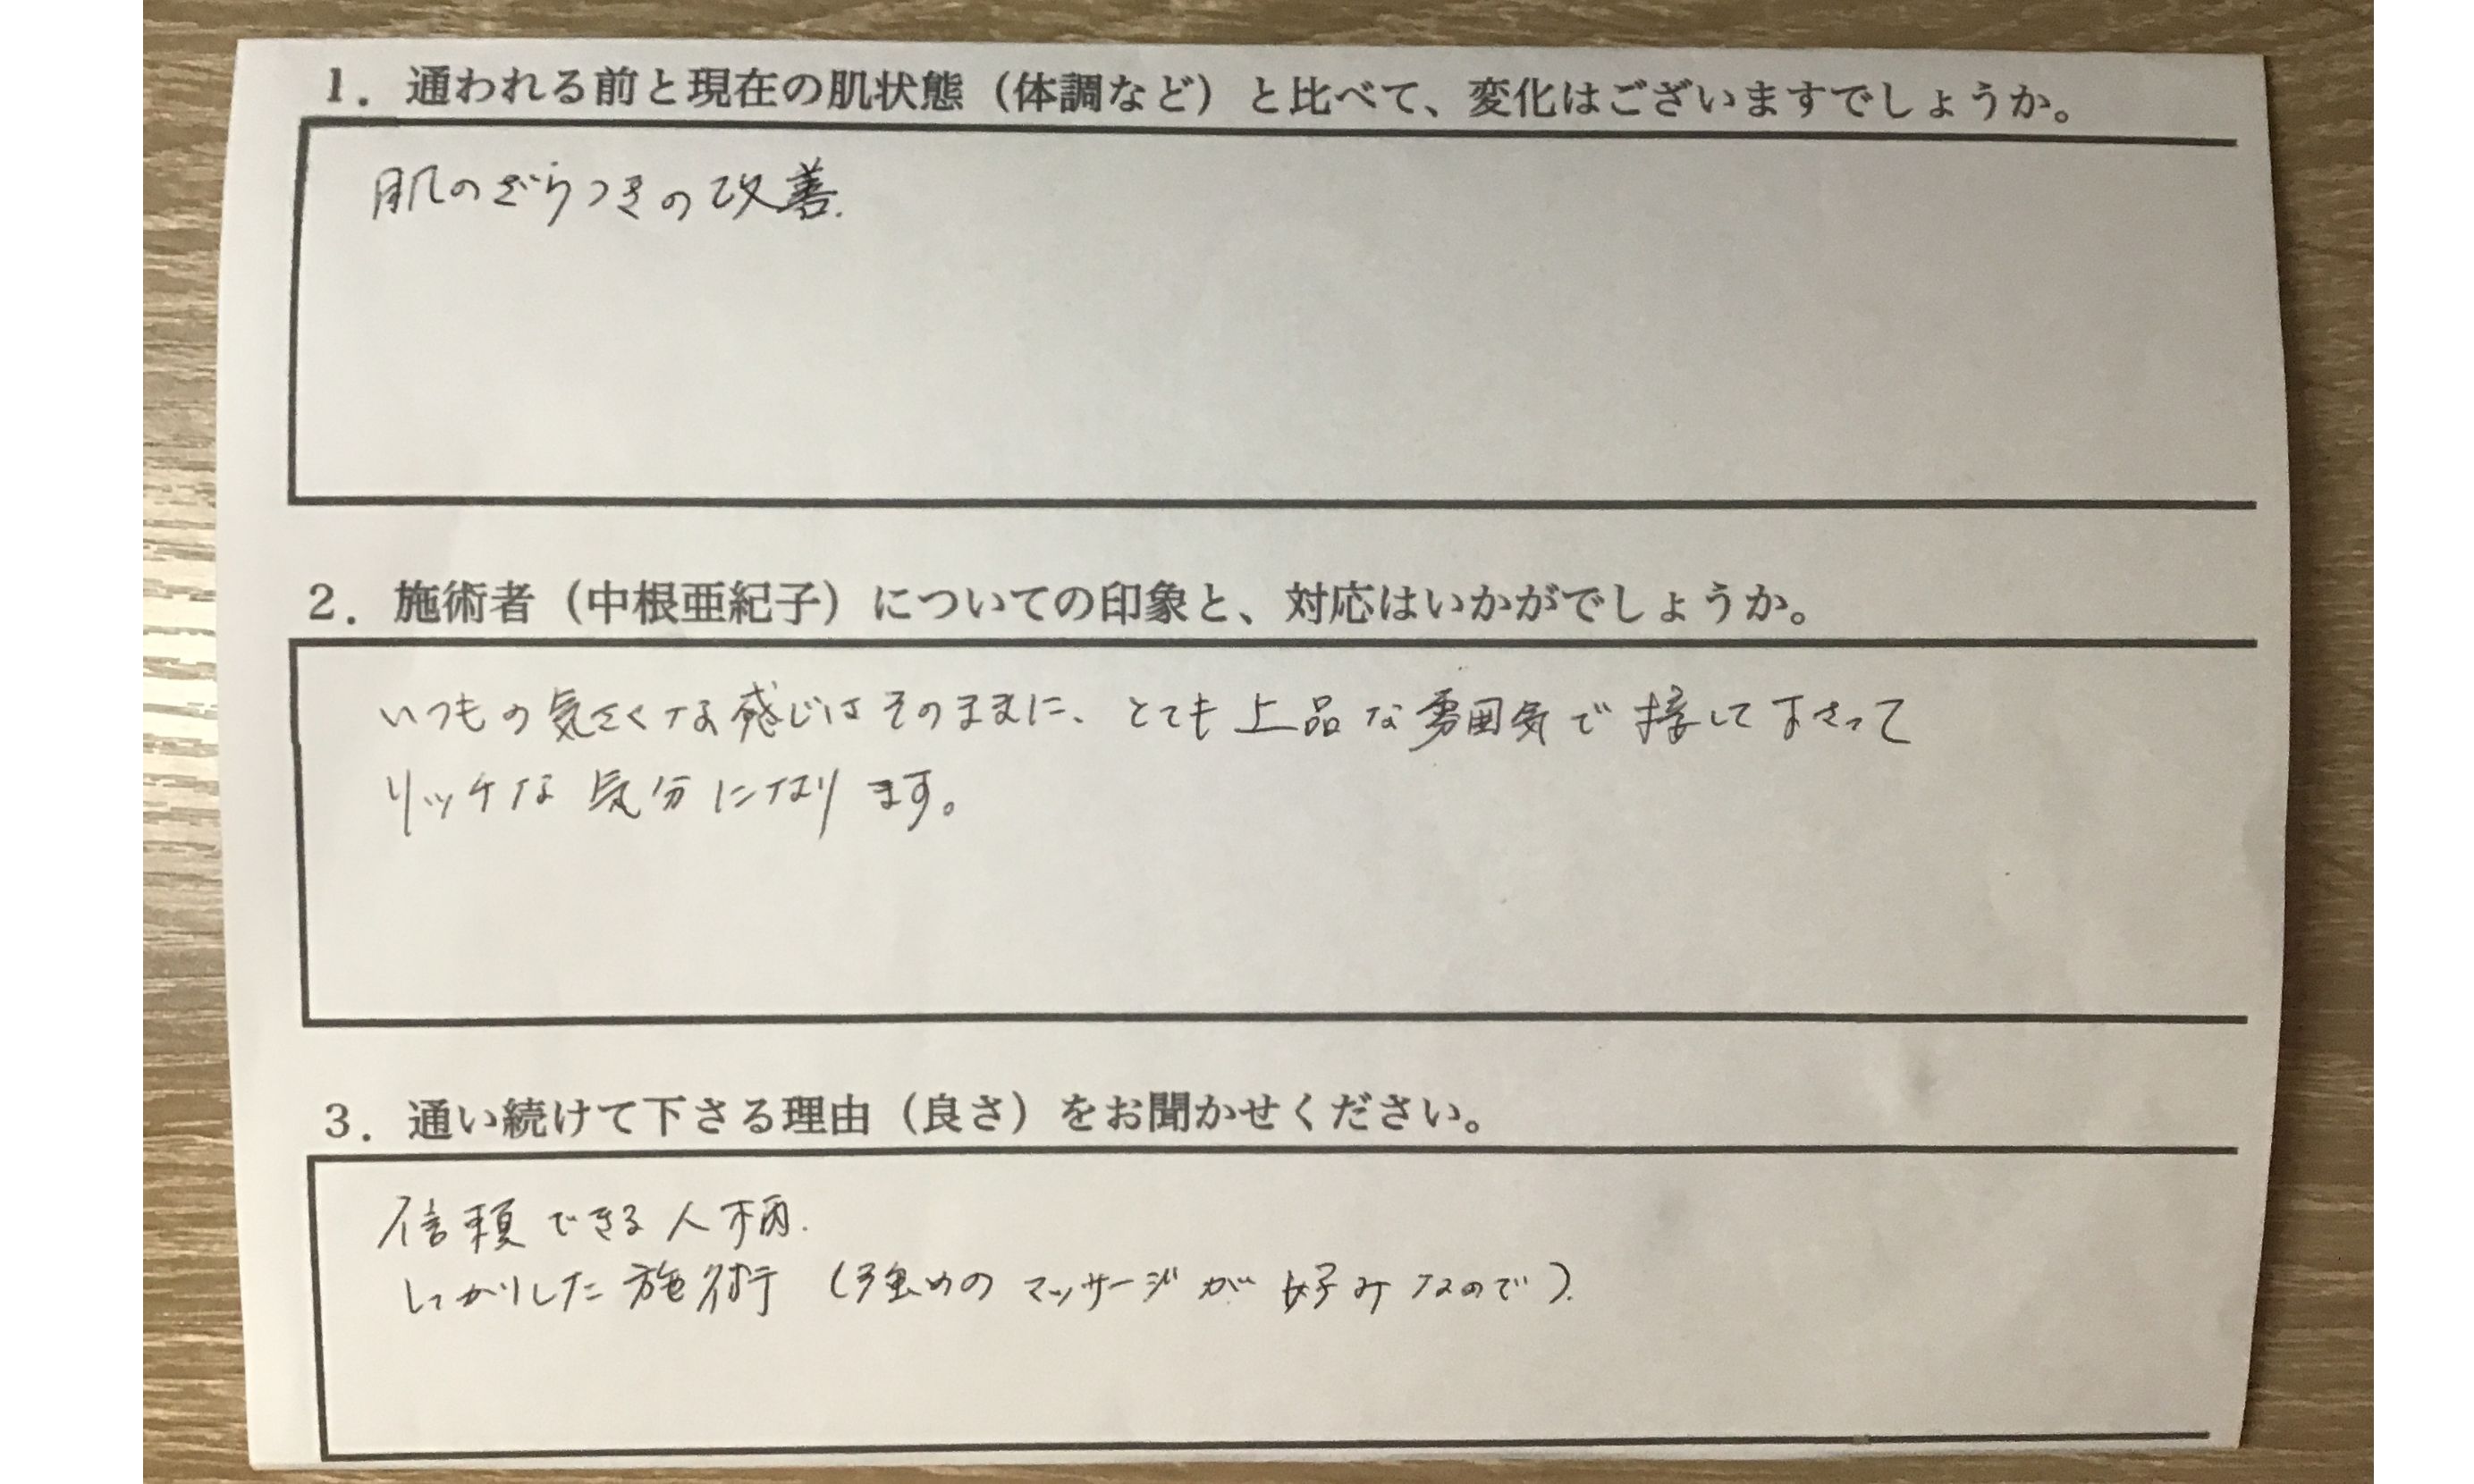 1．通われる前と現在の肌状態（体調など）と比べて、変化はございますでしょうか。
肌のざらつきの改善.
2．施術者（中根亜紀子）についての印象と、対応はいかがでしょうか。
いつもの気さくな感じはそのままに、とても上品な雰囲気で接して下さって
リッチな気分になります。
3．通い続けて下さる理由（良さ）をお聞かせください。
信頼できる人柄.
しっかりした施術（強めのマッサージが好みなので）.